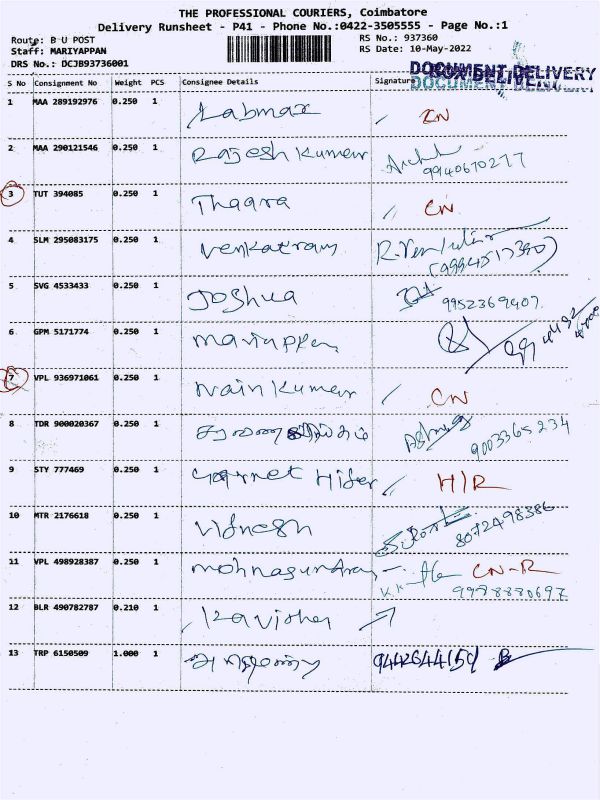 THE PROFESSIONAL COURIERS, Coimbatore
Delivery Runsheet - P41 - Phone No.:0422-3505555 - Page No.:1
Route: B U POST RS No.: 937360
Staff: MARIYAPPAN RS Date: 10-May-2022
DRS No.: DCJB93736001
DOCUMENT DELIVERY
S No Consignment No Weight PCS Consignee Details Signature
1 MAA 289192976 0.250 1 Labmax CN
2 MAA 290121546 0.250 1 Rajesh Kumar 9940610277
3 TUT 394085 0.250 1 Thaara CN
4 SLM 295083175 0.250 1 Venkatram
5 SVG 4533433 0.250 1 Joshua 9952369407
6 GPM 5171774 0.250 1 Mariappan
7 VPL 936971061 0.250 1 Nain Kumar CN
8 TDR 900020367 0.250 1 9003365234
9 STY 777469 0.250 1 H/R
10 MTR 2176618 0.250 1 Vidnesh 8072498386
11 VPL 498928387 0.250 1 CN-R
9978880697
12 BLR 490782787 0.210 1
13 TRP 6150509 1.000 1 9442644159